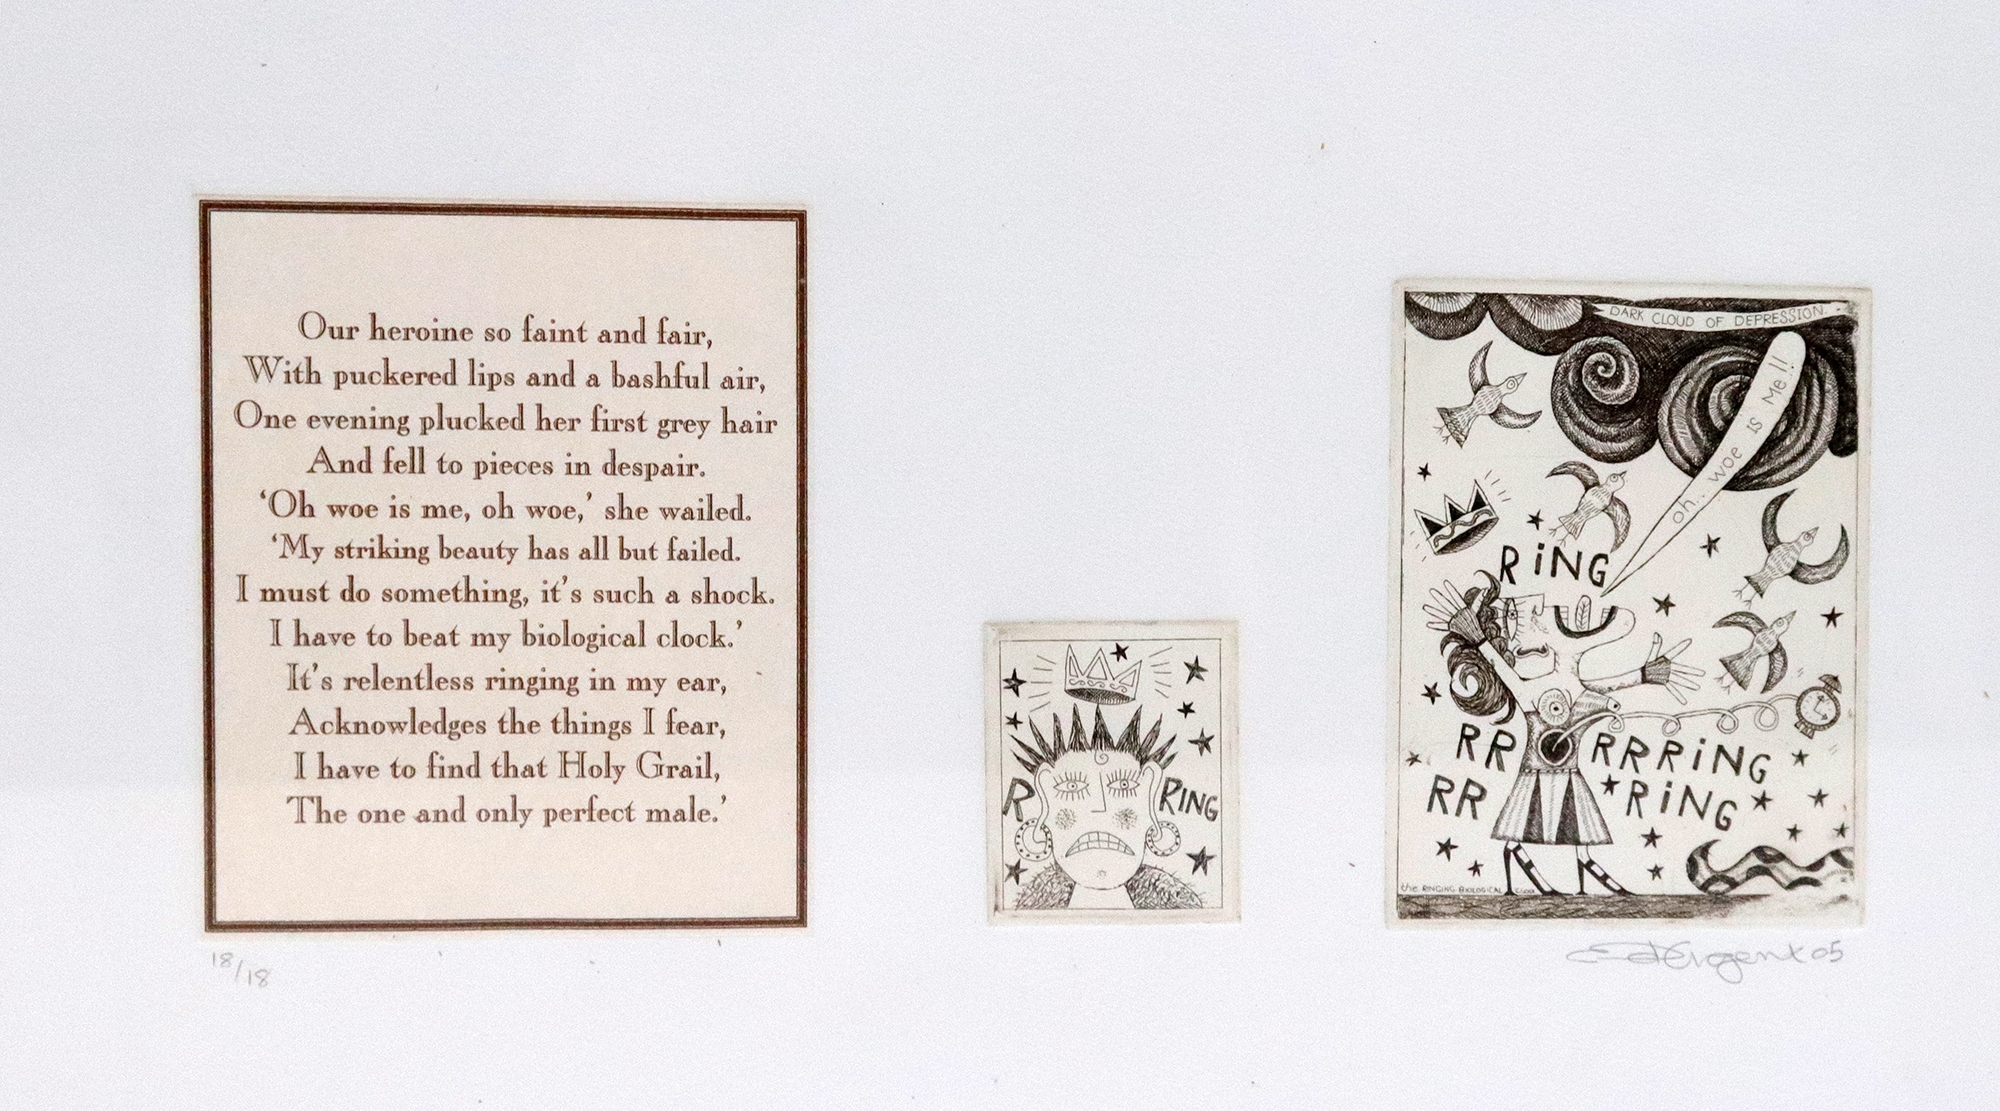 Our heroine so faint and fair,
With puckered lips and a bashful air,
One evening plucked her first grey hair
And fell to pieces in despair.
‘Oh woe is me, oh woe,’ she wailed.
‘My striking beauty has all but failed.
I must do something, it’s such a shock.
I have to beat my biological clock.’
It’s relentless ringing in my ear,
Acknowledges the things I fear,
I have to find that Holy Grail,
The one and only perfect male.’
18/18
R RING
DARK CLOUD OF DEPRESSION
oh.. woe is Me!!
RiNG
RR RRRiNG
RR RiNG
the RINGING BIOLOGICAL CLOCK
05